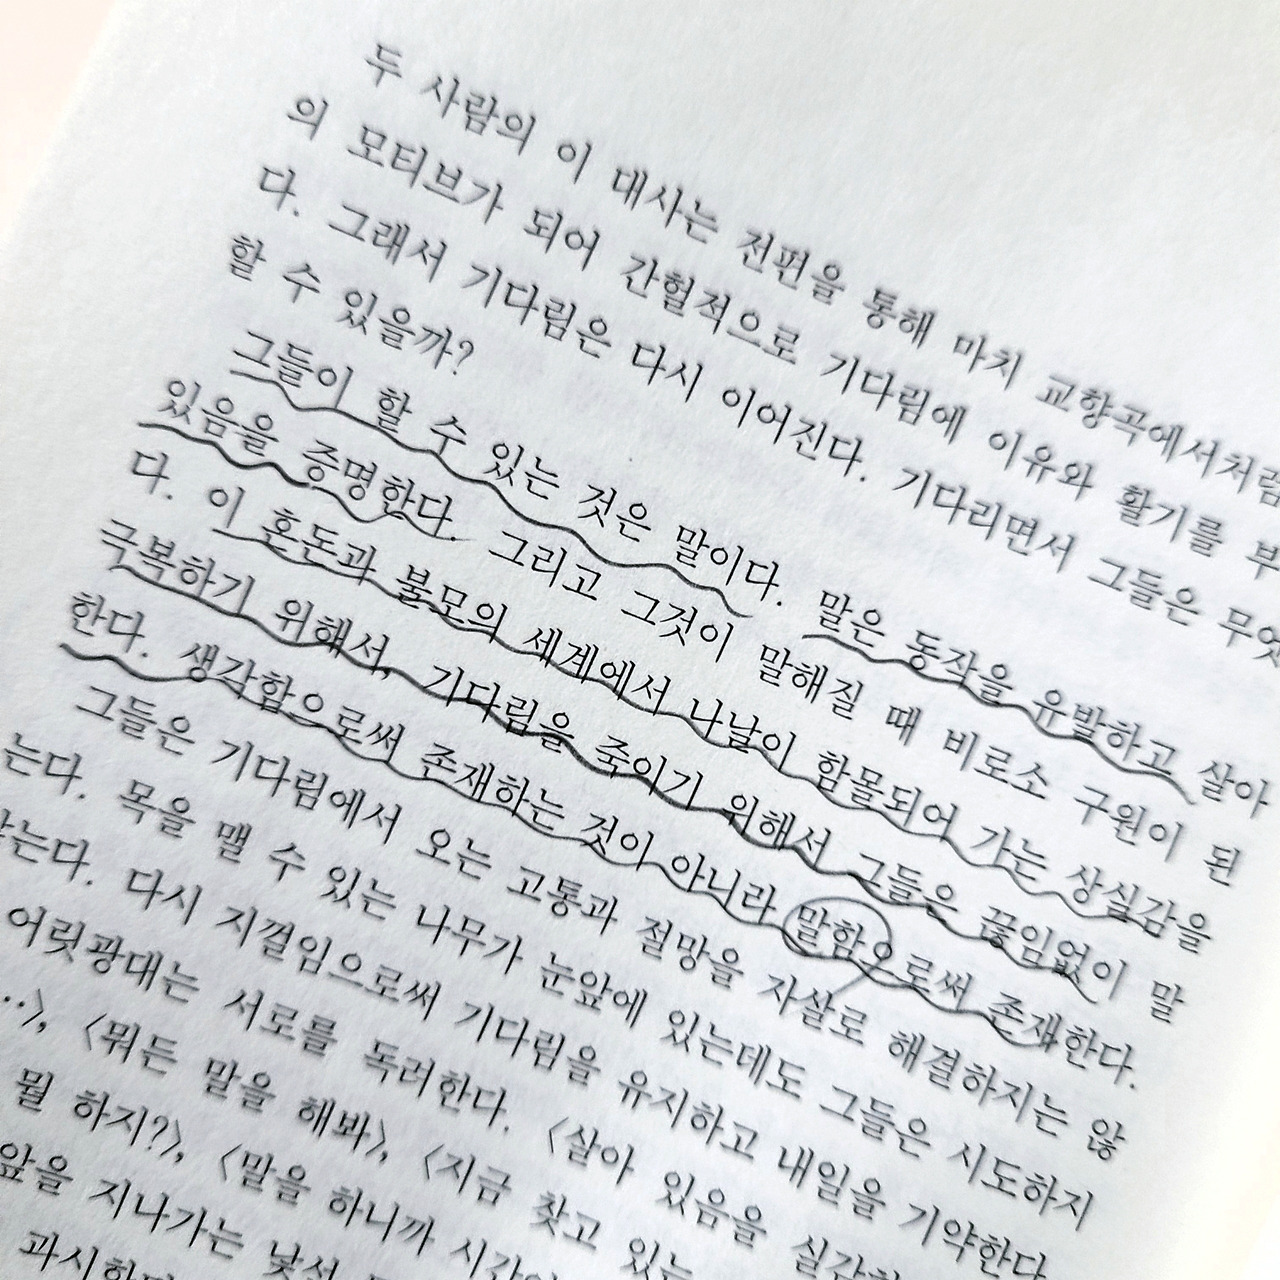 두 사람의 이 대사는 전편을 통해 마치 교향곡에서처럼
의 모티브가 되어 간헐적으로 기다림에 이유와 활기를 부
다. 그래서 기다림은 다시 이어진다. 기다리면서 그들은 무엇
할 수 있을까?
그들이 할 수 있는 것은 말이다. 말은 동작을 유발하고 살아
있음을 증명한다. 그리고 그것이 말해질 때 비로소 구원이 된
다. 이 혼돈과 불모의 세계에서 나날이 함몰되어 가는 상실감을
극복하기 위해서, 기다림을 죽이기 위해서 그들은 끊임없이 말
한다. 생각함으로써 존재하는 것이 아니라 말함으로써 존재한다.
그들은 기다림에서 오는 고통과 절망을 자살로 해결하지는 않
는다. 목을 맬 수 있는 나무가 눈앞에 있는데도 그들은 시도하지
않는다. 다시 지껄임으로써 기다림을 유지하고 내일을 기약한다.
어릿광대는 서로를 독려한다. 〈살아 있음을
〉, 〈뭐든 말을 해봐〉, 〈지금 찾고 있는
뭘 하지?〉, 〈말을 하니까
앞을 지나가는 낯선